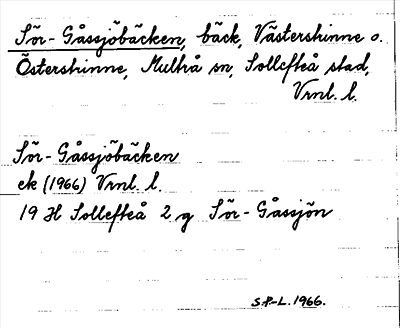 Sör-Gåssjöbäcken, bäck, Västerstrinne o.
Österstrinne, Multrå sn, Sollefteå stad,
Vrnl. l.
Sör-Gåssjöbäcken
ek (1966) Vrnl. l.
19 H Sollefteå 2 g Sör-Gåssjön
S.P-L. 1966.